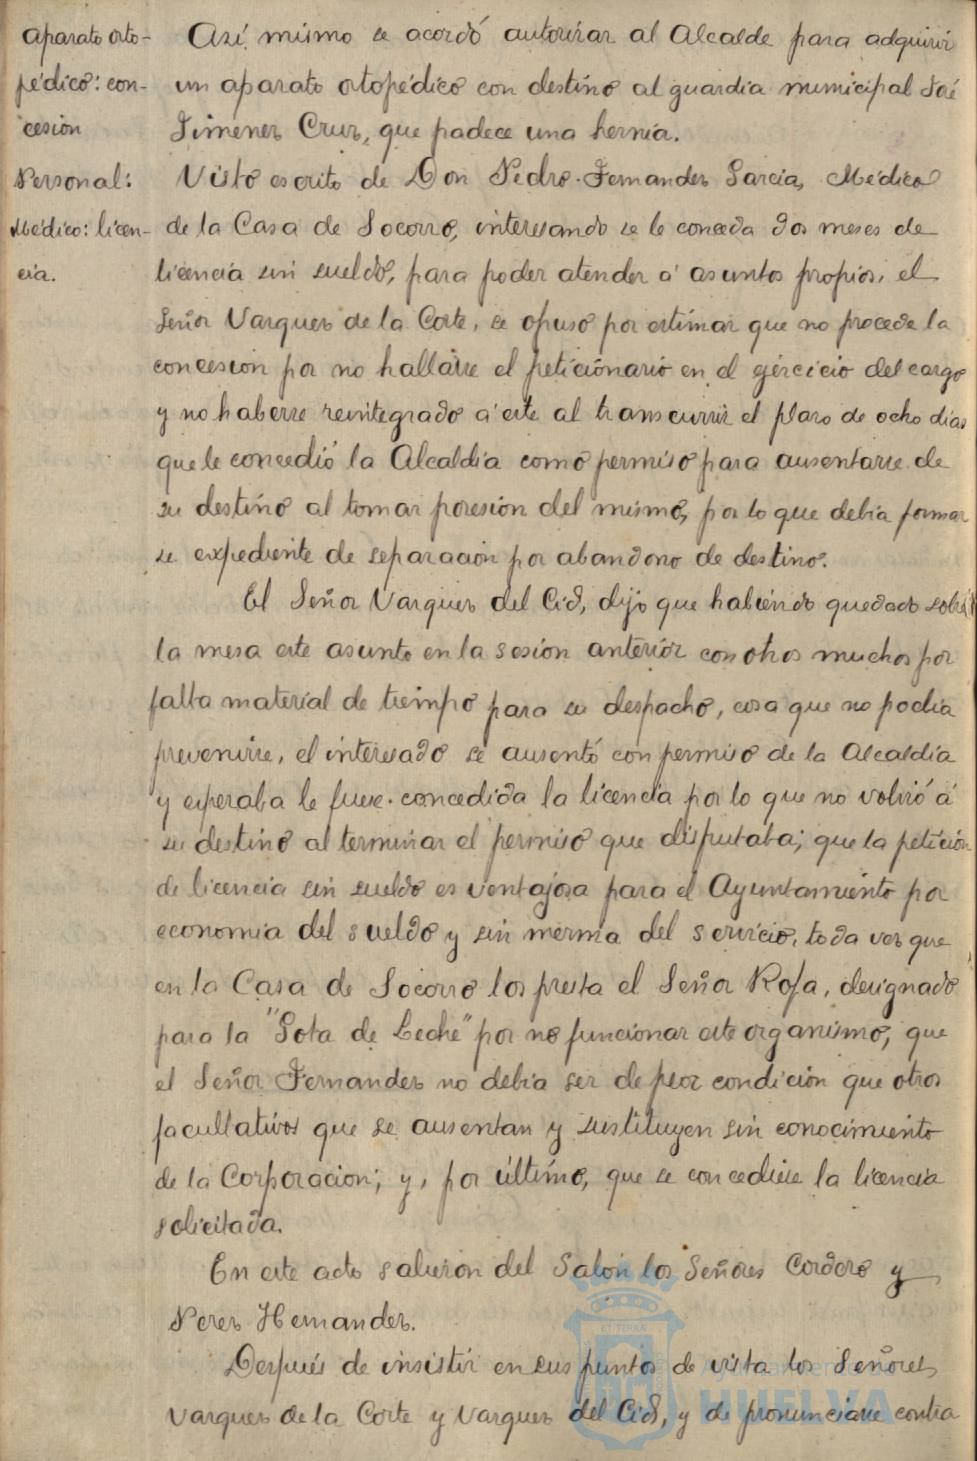 aparato orto-
pédico: con-
cesion
Personal:
Médico: licen-
cia.
Así mismo se acordó autorizar al Alcalde para adquirir
un aparato ortopédico con destino al guardia municipal José
Jimenez Cruz, que padece una hernia.
Visto escrito de Don Pedro Fernandez García, Médico
de la Casa de Socorro, interesando se le conceda dos meses de
licencia sin sueldo, para poder atender á asuntos propios, el
Señor Vazquez de la Corte, se opuso por estimar que no procede la
concesion por no hallarse el peticionario en el ejercicio del cargo
y no haberse reintegrado á este al transcurrir el plazo de ocho dias
que le concedió la Alcaldía como permiso para ausentarse de
su destino al tomar posesion del mismo, por lo que debia formar
se expediente de separación por abandono de destino.
El Señor Vazquez del Cid, dijo que habiendo quedado sobre
la mesa este asunto en la sesion anterior con otros muchos por
falta material de tiempo para su despacho, cosa que no podia
prevenirse, el interesado se ausentó con permiso de la Alcaldia
y esperaba le fuese concedida la licencia por lo que no volvió á
su destino al terminar el permiso que disfrutaba; que la petición
de licencia sin sueldo es ventajosa para el Ayuntamiento por
economia del sueldo y sin merma del servicio, toda vez que
en la Casa de Socorro los presta el Señor Rofa, designado
para la "Gota de Leche" por no funcionar este organismo, que
el Señor Fernandez no debia ser de peor condición que otros
facultativos que se ausentan y sustituyen sin conocimiento
de la Corporacion; y, por último, que se concediese la licencia
solicitada.
En este acto salieron del Salon los Señores Cordero y
Perez Hernandez.
Después de insistir en sus puntos de vista los Señores
Vazquez de la Corte y Vazquez del Cid, y de pronunciarse contra
Ayuntamiento de
HUELVA